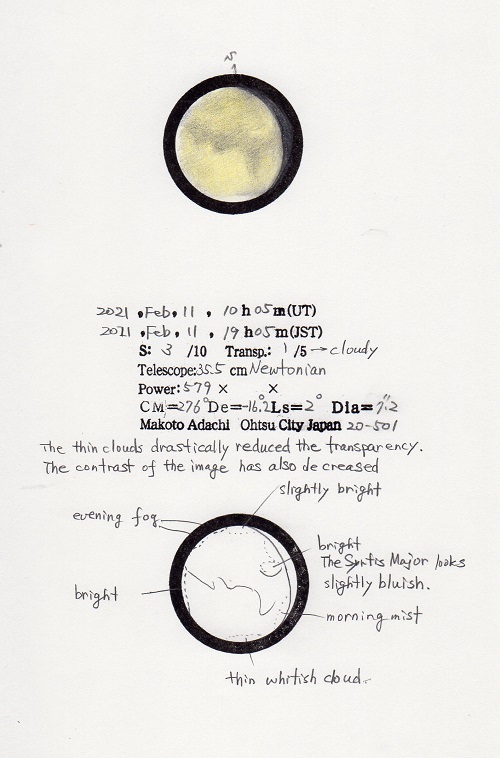 N
2021 , Feb, 11 , 10 h 05 m (UT)
2021 , Feb, 11 , 19 h 05 m (JST)
S: 3 /10 Transp.: 1 /5 → cloudy
Telescope: 35.5 cm Newtonian
Power: 579 × ×
CM=276° De=-16.2° Ls=2° Dia=7".2
Makoto Adachi Ohtsu City Japan 20-501
The thin clouds drastically reduced the transparency.
The contrast of the image has also decreased
slightly bright
evening fog
bright
The Syrtis Major looks
slightly bluish.
bright
morning mist
thin whitish cloud.